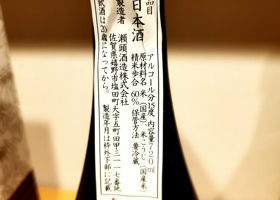 品目
日本酒
アルコール分15度 内容量720ml
原材料名 米(国産)、米こうじ(国産米)
精米歩合 60% 保管方法 要冷蔵
製造者
瀬頭酒造株式会社
佐賀県嬉野市塩田町大字五町田甲三一一七番地
飲酒は20歳になってから。 製造年月は枠外下部に記載